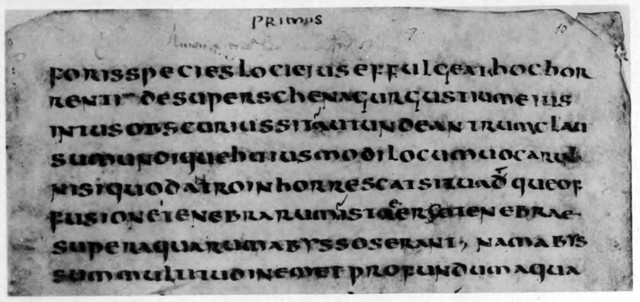 PRIMUS
FORISSPECIESLOCIEIUSEFFULGEATHOCHOR
RENTI DESUPERSCHENAGURGUSTIUMEIUS
INTUSOBSCURIUSSITAUTUNDEANTRUMCLAU
SUMUNDIQUEHUIUSMODILOCUMUOCARUNT
NISIQUODATROINHORRESCATSITUADQUEOF
FUSIONETENEBRARUMISTAEERGOTENEBRAE
SUPERAQUARUMABYSSOSERANT, NAMABYS
SUMMULTITUDINEMETPROFUNDUMAQUA